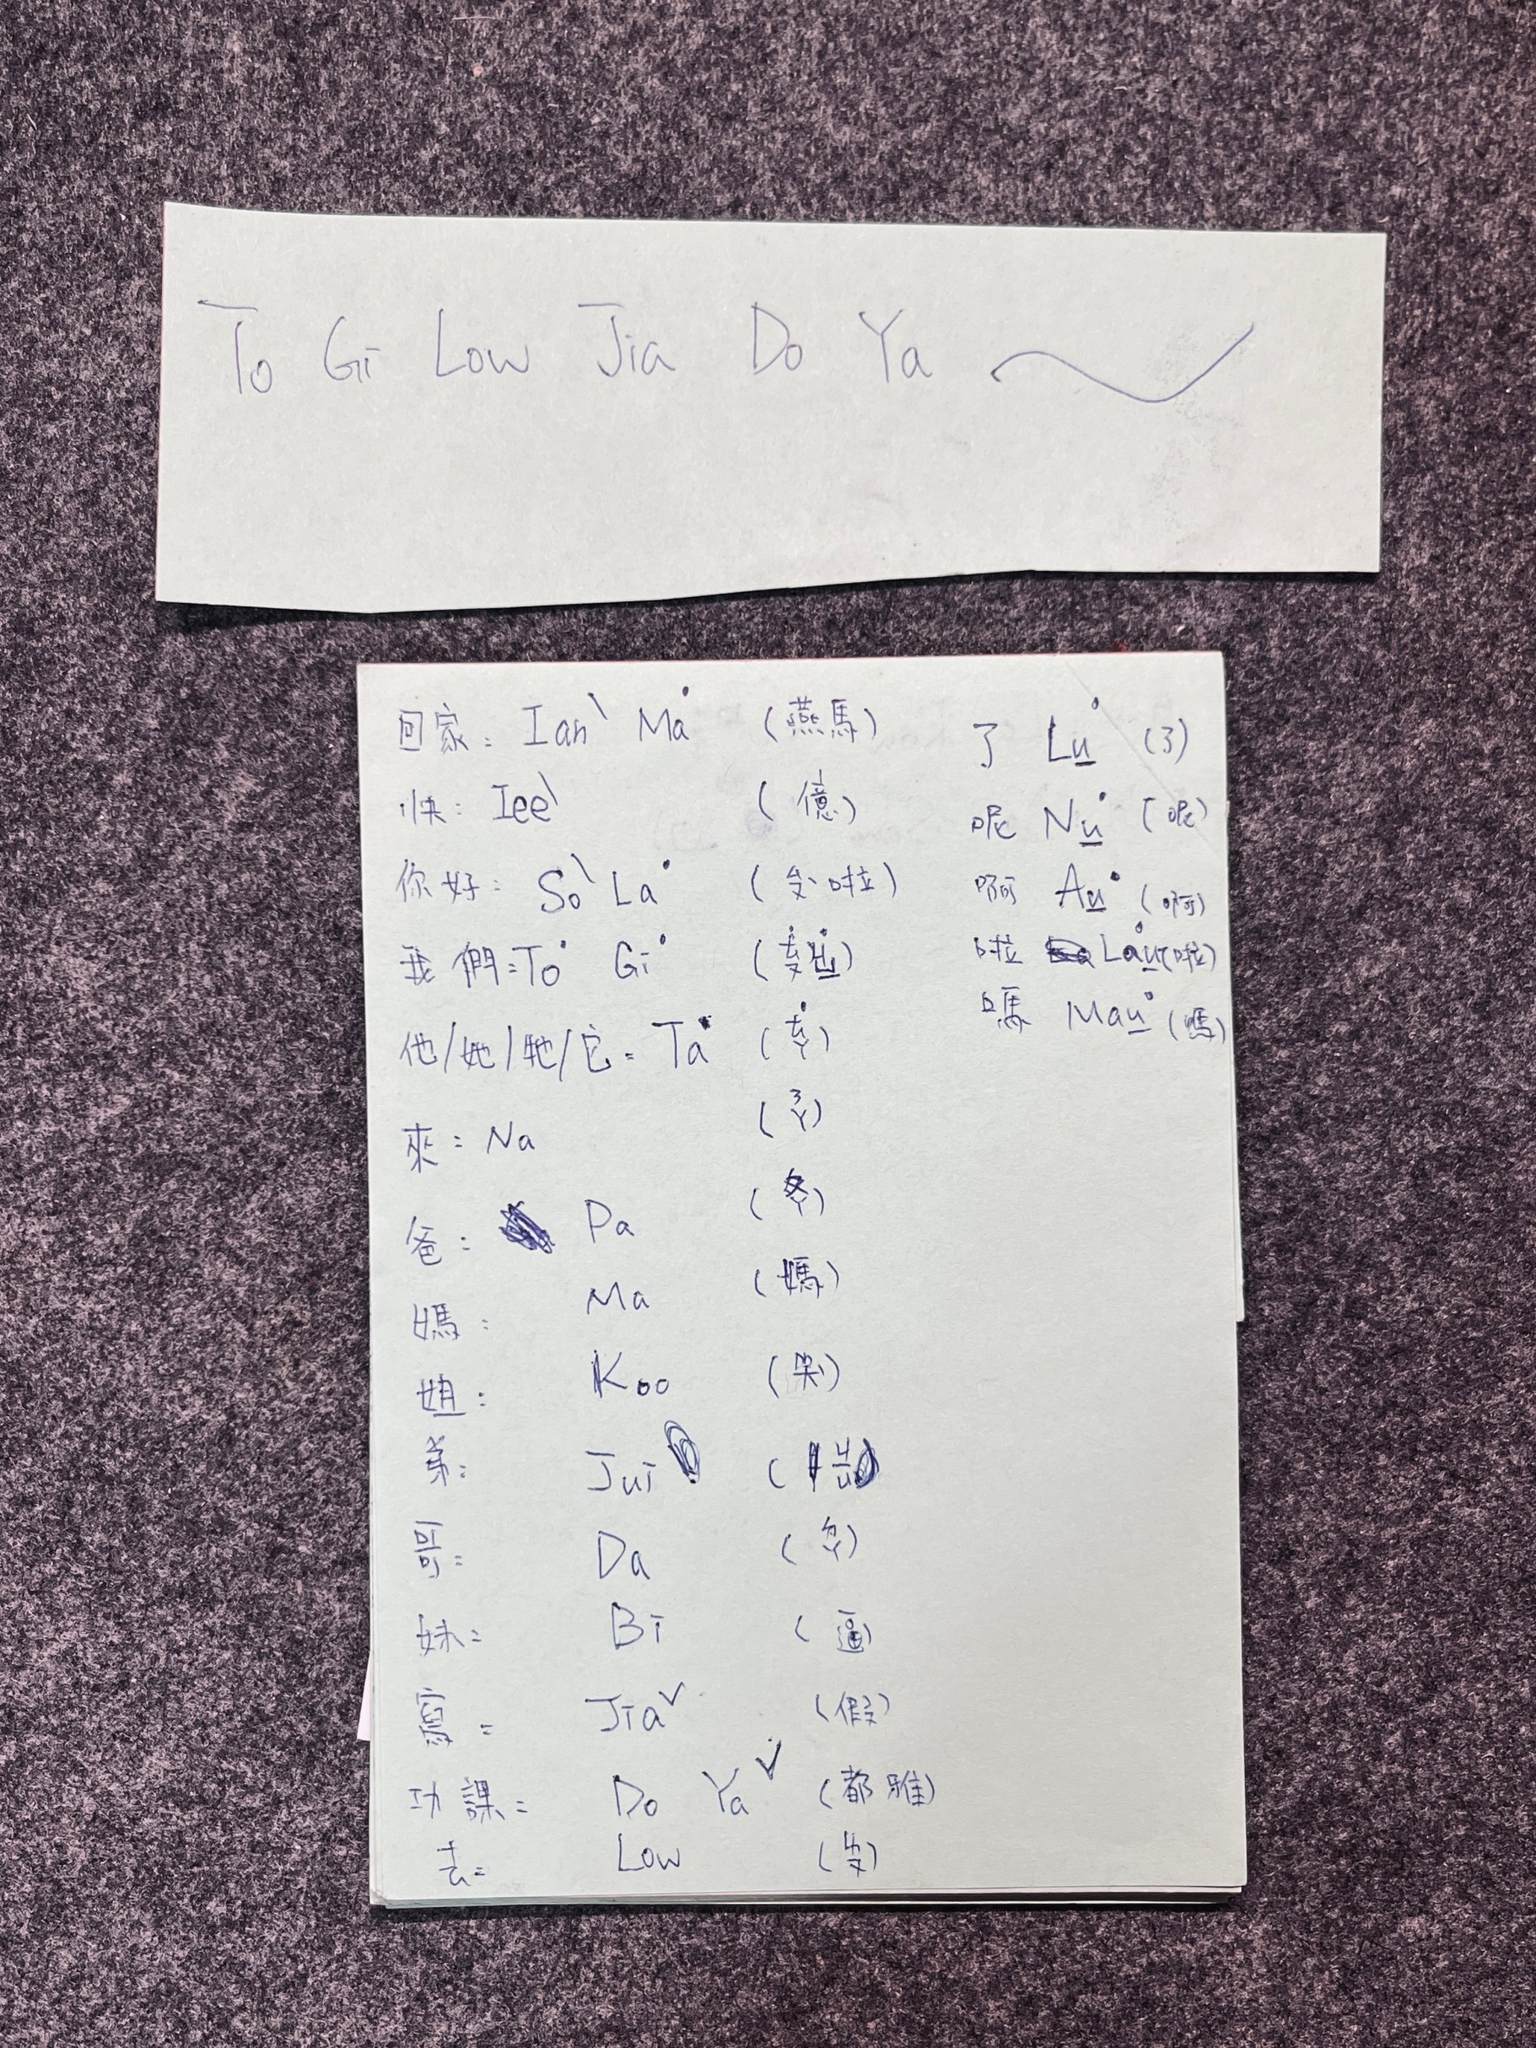 To Gi Low Jia Do Ya
回家: Ianˋ Ma˙ (燕馬)
快: Ieeˋ (億)
你好: Soˋ La˙ (ㄙㄡˋ啦)
我們: To˙ Gi˙ (˙ㄊㄡ˙ㄐㄩ)
他/她/牠/它: Ta˙ (˙ㄊㄚ)
來: Na (ㄋㄚ)
爸: Pa (ㄆㄚ)
媽: Ma (媽)
姐: Koo (哭)
弟: Jui
哥: Da (ㄉㄚ)
妹: Bi (逼)
寫: Jiaˇ (假)
功課: Do Yaˇ (都雅)
去: Low (ㄌㄡ)
了 Lu˙ (了)
呢 Nu˙ (呢)
啊 Au˙ (啊)
啦 Lau˙ (啦)
嗎 Mau˙ (嗎)